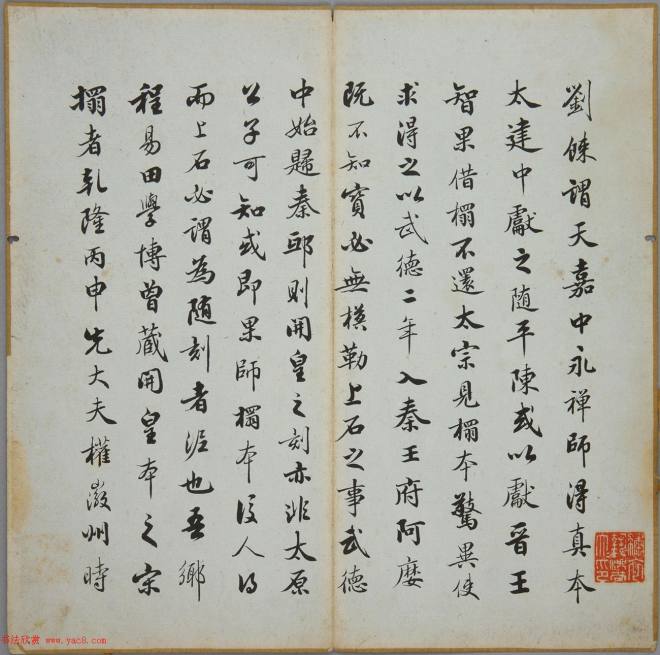 劉餗謂天嘉中永禪師得真本
太建中獻之随平陳或以獻晋王
智果借榻不還太宗見榻本驚異使
求得之以武德二年入秦王府阿麼
既不知寶必無摸勒上石之事武德
中始歸秦邸則開皇之刻亦非太原
公子可知或即果師榻本後人得
而上石必謂為随刻者泥也吾鄉
程易田學博曾藏開皇本之宋
榻者乾隆丙申先大夫權徽州時
书法欣赏 www.yac8.com